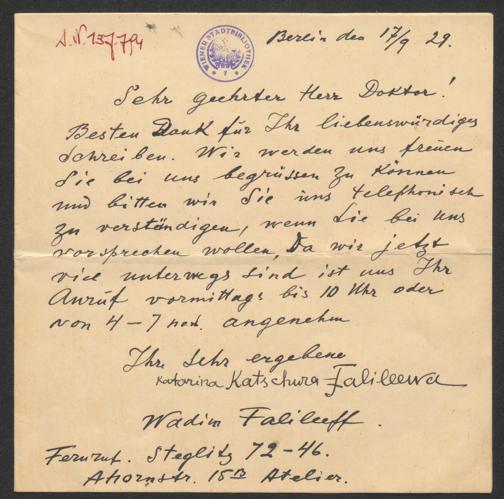 J.N. 137.794
WIENER STADTBIBLIOTHEK
Berlin den 17/9 29.
Sehr geehrter Herr Doktor!
Besten Dank für Ihr liebenswürdiges
Schreiben. Wir werden uns freuen
Sie bei uns begrüssen zu können
und bitten wir Sie uns telephonisch
zu verständigen, wenn Sie bei uns
vorsprechen wollen, Da wir jetzt
viel unterwegs sind ist uns Ihr
Anruf vormittags bis 10 Uhr oder
von 4–7 angenehm
Ihre Sehr ergebene
Katarina Katschura Falileewa
Wadim Falileeff.
Fernruf. Steglitz 72–46.
Ahornstr. 15B Atelier.